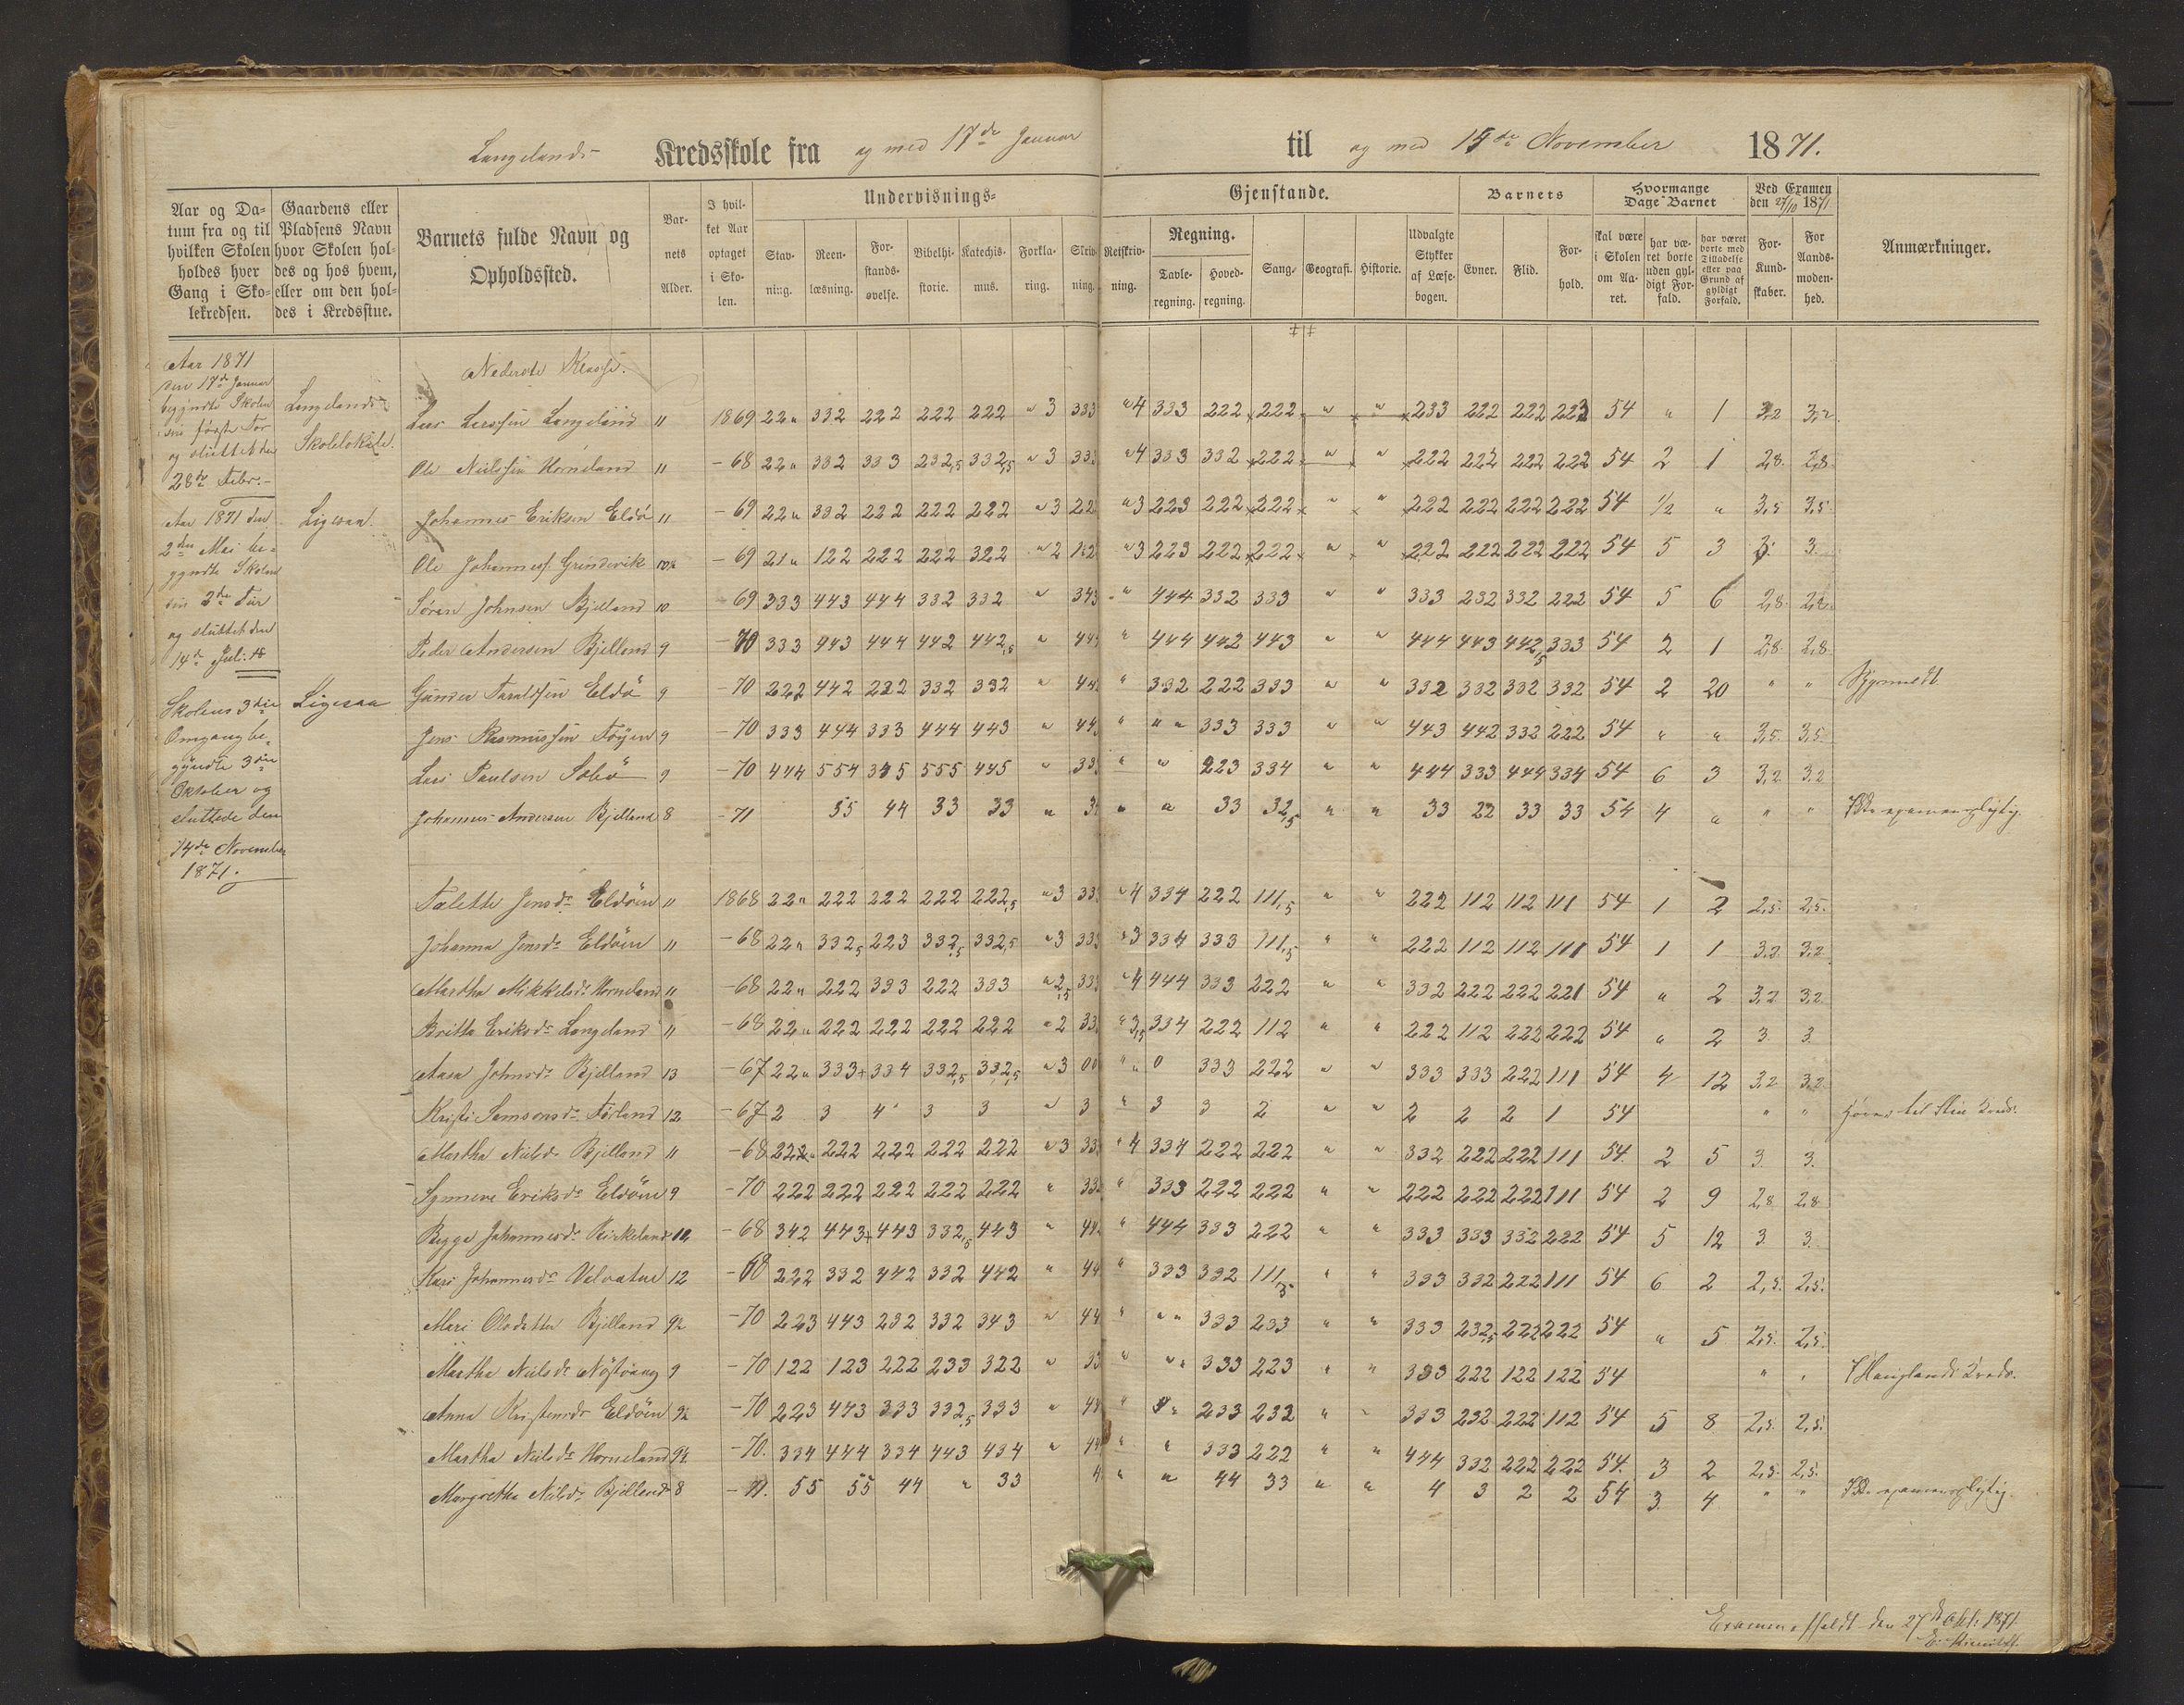 Langelands Kredsskole fra og med 17de Januar til og med 15de November 1871.
Aar og Datum fra og til hvilken Skolen holdes hver Gang i Skolekredsen.
Gaardens eller Pladsens Navn hvor Skolen holdes og hos hvem, eller om den holdes i Kredsstue.
Barnets fulde Navn og Opholdssted.
Barnets Alder.
I hvilket Aar optaget i Skolen.
Undervisnings-
Stavning. Reenlæsning. Forstandsøvelse. Bibelhistorie. Katechismus. Forklaring. Skrivning.
Gjenstande.
Retskrivning. Regning. Tavleregning. Hovedregning. Sang. Geografi. Historie. Udvalgte Stykker af Læsebogen.
Barnets
Evner. Flid. Forhold.
Hvormange Dage Barnet
skal være i Skolen om Aaret. har været borte uden gyldigt Forfald. har været borte med Tilladelse eller paa Grund af gyldigt Forfald.
Ved Examen den 27/10 1871.
For Kundskaber. For Aandsmodenhed.
Anmærkninger.
Aar 1871
den 17de Januar
begyndte Skolen
sin første Tør
og sluttet den
28de Febr.
Langelands
Skolelokale.
Aar 1871 den
2den Mai be-
gyndte Skolen
sin 2de Tür
og sluttet den
14de Juli
Ligesaa.
Skolens 3die
Omgang be-
gyndte 3die
Oktober og
sluttede den
14de November
1871.
Ligesaa
Nederste Klasse.
Lars Larssen Langeland 11 1869 22" 332 222 222 222 " 3 333 " 4 333 222 222 " " 233 222 222 223 54 " 1 3,2 3,2
Ole Nielssen Horneland 11 -68 22" 332 333 232,5 332,5 " 3 333 " 4 333 332 222 " " 222 222 222 222 54 2 1 2,8 2,8
Johannes Eriksen Eldö 11 -69 22" 332 222 222 222 " 3 222 " 3 223 222 222 " " 222 222 222 222 54 1/2 " 3,5 3,5
Ole Johanness. Grindevik 10½ -69 21" 122 222 222 322 " 2 122 " 3 223 222 222 " " 222 222 222 222 54 5 3 3. 3.
Sören Johnsen Bjelland 10 -69 333 443 444 332 332 " 343 " 444 332 333 " " 333 232 332 222 54 5 6 2,8 2,8
Peder Andersen Bjelland 9 -70 333 443 444 442 442,5 " 443 " 444 442 443 " " 444 443 442,5 333 54 2 1 2,8 2,8
Gunder Taraldsen Eldö 9 -70 222 442 222 332 332 " 442 " 332 222 333 " " 332 332 332 332 54 2 20 " "
Jens Rasmussen Töyen 9 -70 333 444 333 444 443 " 443 " " " 333 333 " " 443 442 332 222 54 " " 3,5 3,5
Lars Paulsen Sæbö 9 -70 444 554 335 555 445 " 333 " " 223 334 " " 444 333 444 334 54 6 3 3,2 3,2
Johannes Andersen Bjelland 8 -71 55 44 33 33 " 3 " " 33 32,5 " " 33 22 33 33 54 4 " " " Ikke examenspligtig.
Talette Jensdr Eldöen 11 1868 22" 222 222 222 222,5 " 3 333 " 4 334 222 111,5 " " 222 112 112 111 54 1 2 2,5 2,5
Johanna Jensdr Eldöen 11 -68 22" 332,5 223 332,5 332,5 " 3 333 " 3 334 333 111,5 " " 222 112 112 111 54 1 1 3,2 3,2
Martha Mikkelsdr Horneland 11 -68 22" 222 333 222 333 " 2,5 333 " 4 444 333 222 " " 332 222 222 221 54 " 2 3,2 3,2
Britta Eriksdr Langeland 11 -68 22" 222 222 222 222 " 2 33 " 3,5 334 222 112 " " 222 112 222 222 54 " 2 3 3
Aasa Johnsdr Bjelland 13 -67 22" 333 334 332,5 332,5 " 3 00 " 0 333 222 " " 333 333 222 111 54 4 12 3,2 3,2
Kristi Samsonsdr Förland 12 -67 2 3 4 3 3 " 3 " 3 3 2 " " 2 2 2 1 54 " "
Martha Nielsdr Bjelland 11 -68 222 222 222 222 222 " 3 33 " 4 334 222 222 " " 332 222 222 111 54 2 5 3. 3.
Synneve Eriksdr Eldöen 9 -70 222 222 222 222 222 " 333 " 333 222 222 " " 222 222 222 111 54 2 9 2,8 2,8
Begga Johannesdr Birkeland 12 -68 342 443 443 332,5 443 " 442 " 444 333 222 " " 333 333 332 222 54 5 12 3 3.
Kari Johannesdr Valvatne 12 -68 222 332 442 332 442 " 44 " 333 332 111,5 " " 333 332 222 111 54 6 2 2,5 2,5
Mari Olsdatter Bjelland 9½ -70 223 443 232 332 343 " 44 " " " 333 233 " " 333 232,5 222 222 54 " 5 2,5 2,5
Martha Nielsdr Nöstvaag 9 -70 122 123 222 233 322 " 33 " " " 333 223 " " 333 222 122 122 54 " " I Hauglands Kreds.
Anna Kristensdr Eldöen 9½ -70 223 443 333 332,5 333 " 43 " " 233 232 " " 333 232 222 112 54 5 8 2,5 2,5
Martha Nielsdr Horneland 9½ -70. 334 444 334 443 434 " 44 " " 333 222 " " 444 332 222 222 54. 3 2 2,5 2,5
Margretha Nielsdr Bjelland 8 -71. 55 55 44 " 33 4 " " 44 33 " " 4 3 2 2 54 3 4 " " Ikke examenspligtig.
Examen afholdt den 27de Okt: 1871.